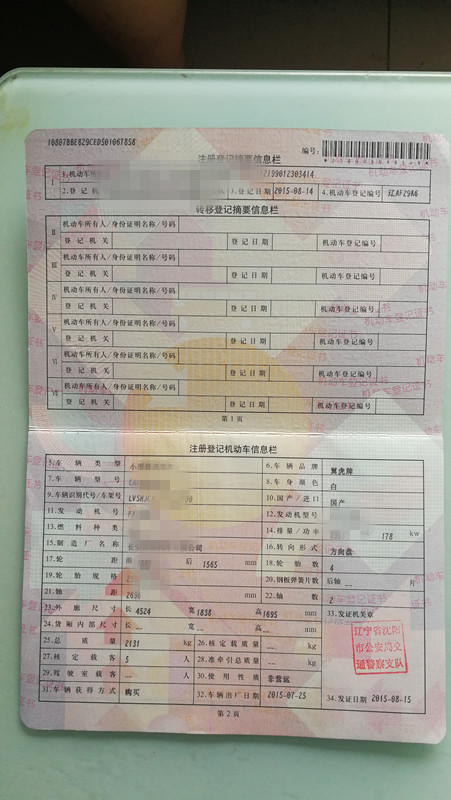 编号:
注册登记摘要信息栏
I 1.机动车所
2.登记机 3.登记日期 2015-08-14 4.机动车登记编号
转移登记摘要信息栏
II 机动车所有人/身份证明名称/号码
登记机关 登记日期 机动车登记编号
III 机动车所有人/身份证明名称/号码
登记机关 登记日期 机动车登记编号
IV 机动车所有人/身份证明名称/号码
登记机关 登记日期 机动车登记编号
V 机动车所有人/身份证明名称/号码
登记机关 登记日期 机动车登记编号
VI 机动车所有人/身份证明名称/号码
登记机关 登记日期 机动车登记编号
VII 机动车所有人/身份证明名称/号码
登记机关 登记日期 机动车登记编号
第1页
注册登记机动车信息栏
5.车辆类型 小 6.车辆品牌 翼虎牌
7.车辆型号 8.车身颜色 白
9.车辆识别代号/车架号 10.国产/进口 国产
11.发动机号 12.发动机型号
13.燃料种类 14.排量/功率 178 kw
15.制造厂名称 公司 16.转向形式 方向盘
17.轮距 后 1565 mm 18.轮胎数 4
19.轮胎规格 20.钢板弹簧片数 后轴 -- 片
21.轴距 2690 mm 22.轴数 2
23.外廓尺寸 长 4524 宽 1838 高 1695 mm 33.发证机关章
24.货厢内部尺寸 长 -- 宽 -- 高 -- mm
25.总质量 2131 kg 26.核定载质量 -- kg
27.核定载客 5 人 28.准牵引总质量 -- kg
29.驾驶室载客 -- 人 30.使用性质 非营运
31.车辆获得方式 购买 32.车辆出厂日期 2015-07-25 34.发证日期 2015-08-15
辽宁省沈阳
市公安局交
通警察支队
第2页